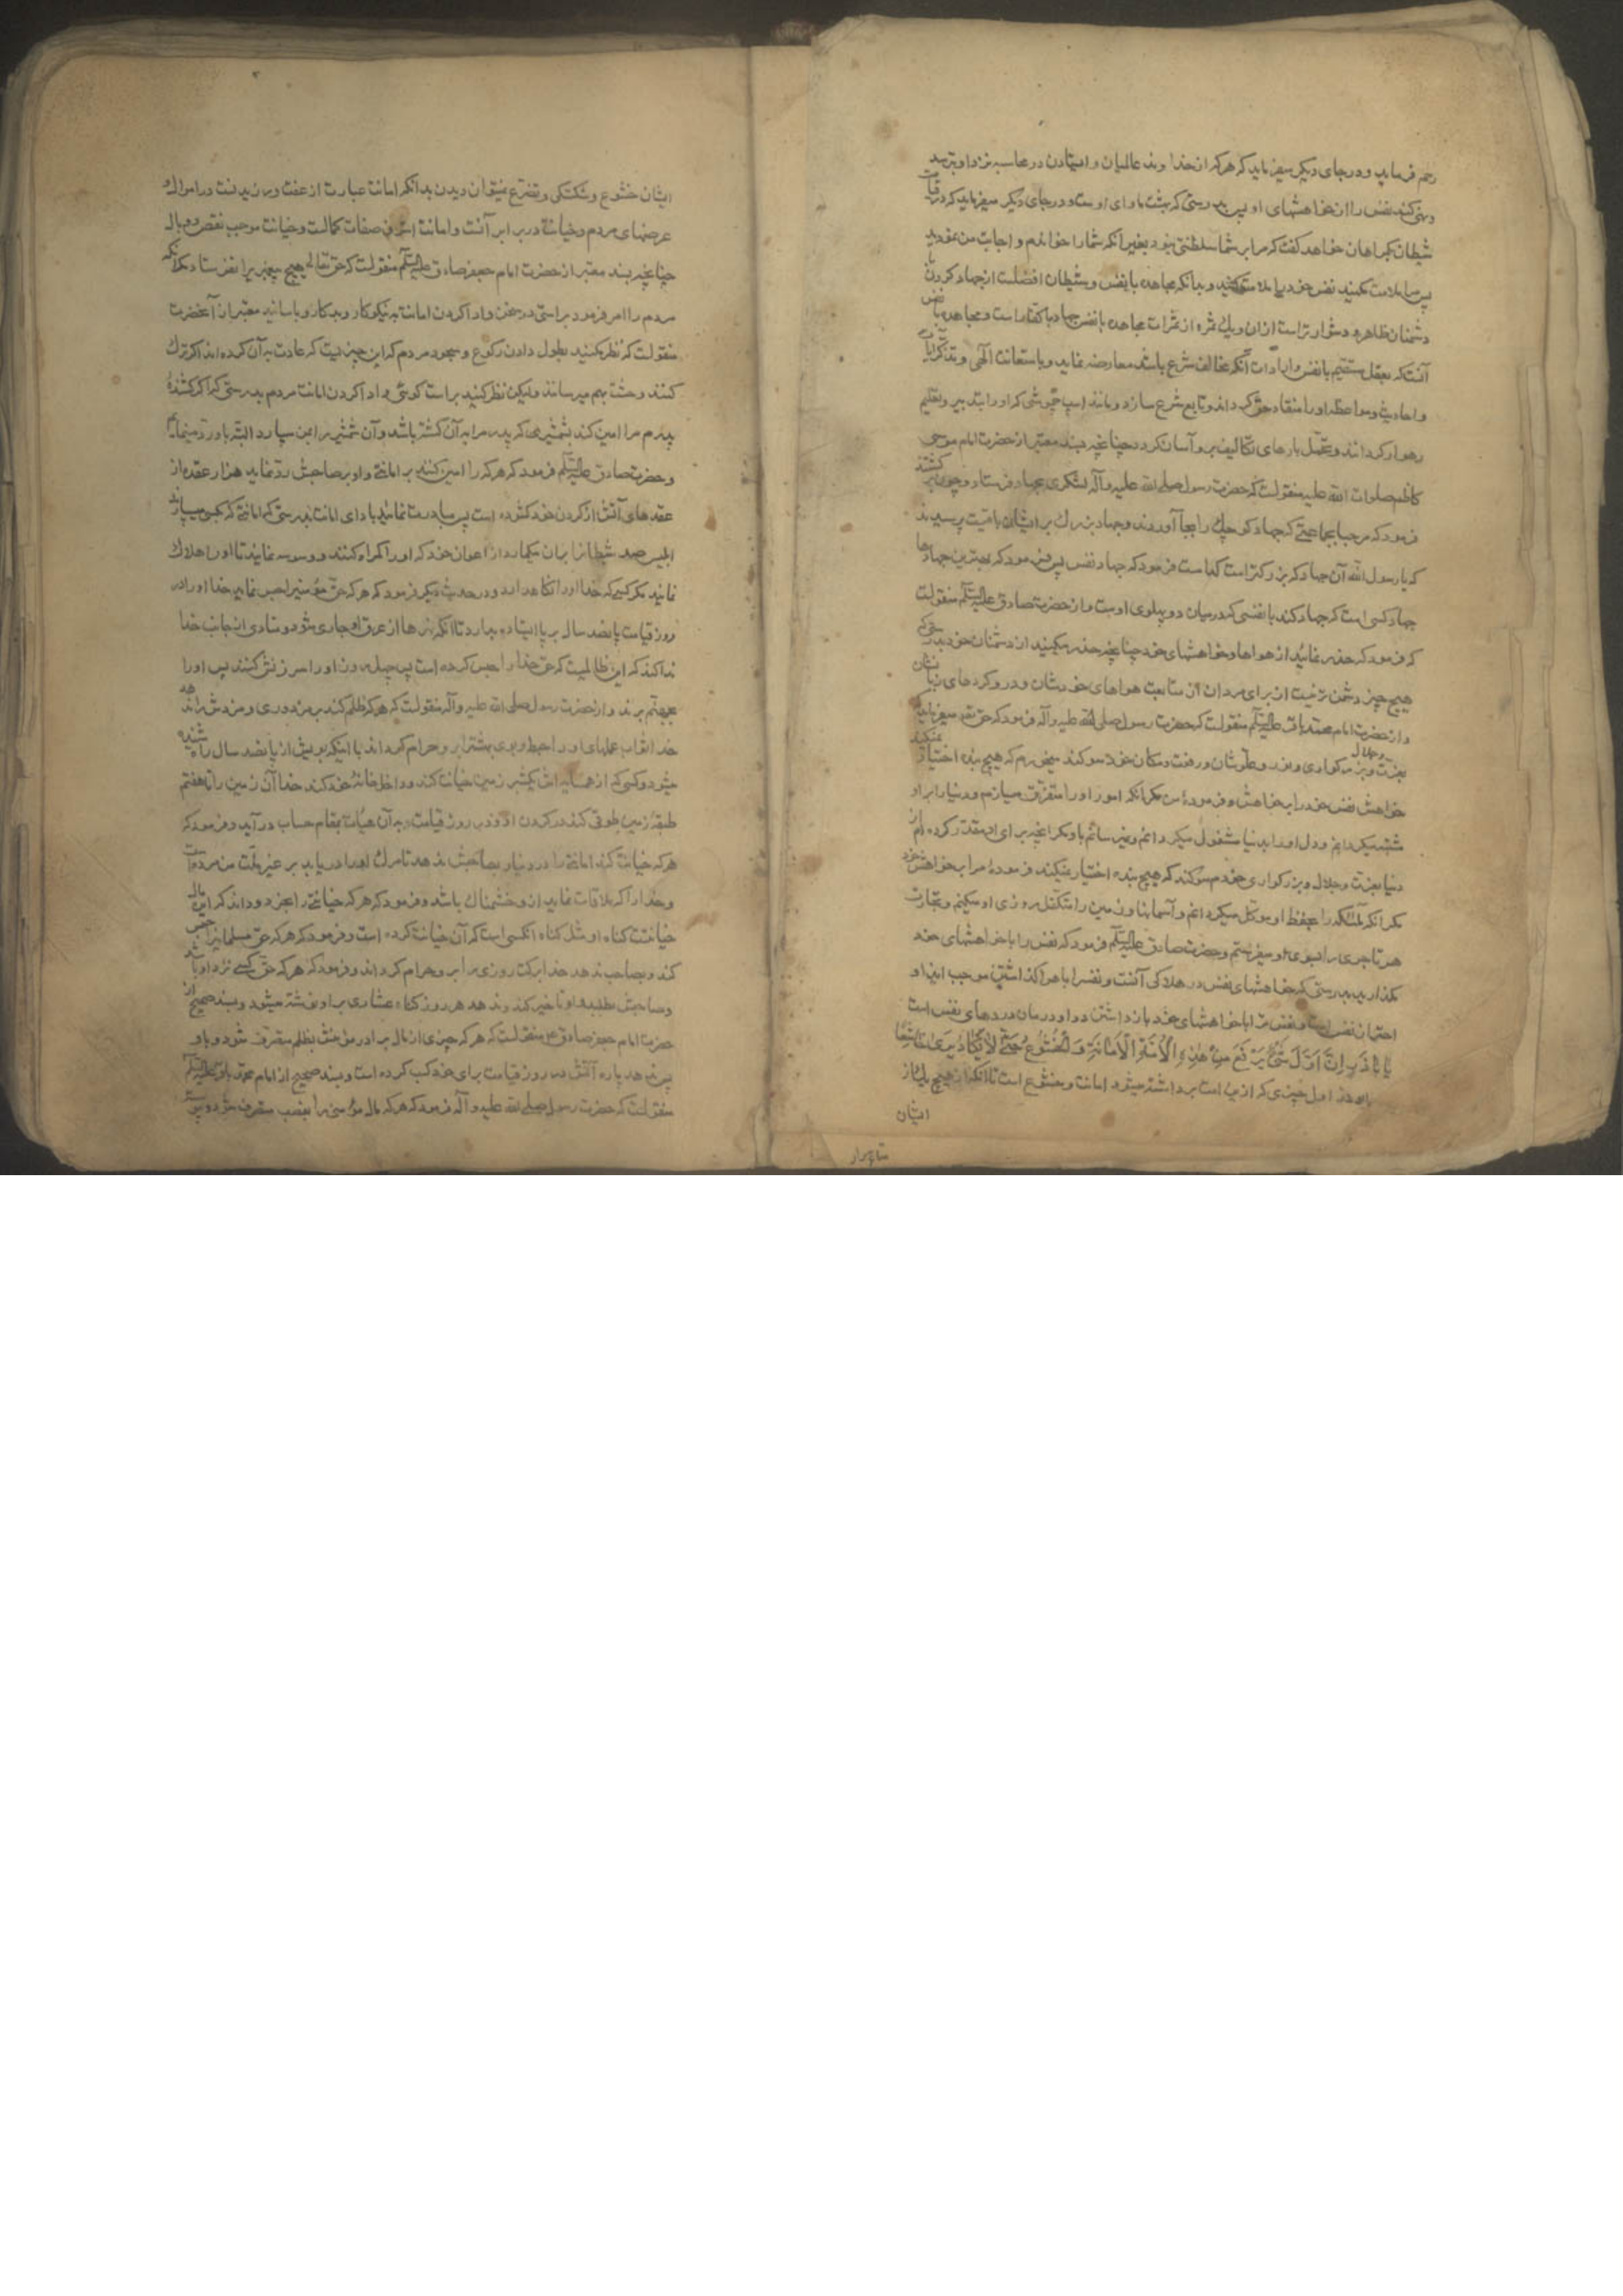 رحم فرماید و در جای دیگر میفرماید که هرکه از خدا وند عالمیان و ایستادن در محاسبه نزد او بترسد
و نهی کند نفس را از خواهشهای او پس بدرستی که بهشت ماوای اوست و در جای دیگر میفرماید که در قیامت
شیطان بگمراهان خواهد گفت که مرا بر شما سلطنتی نبود بغیر آنکه شما را خواندم و اجابت من نمودید
پس مرا ملامت مکنید نفس خود را ملامت کنید و بدانکه مجاهده با نفس و شیطان افضلست از جهاد کردن با
دشمنان ظاهر و دشوارتر است ازان و یکی ثمره از ثمرات مجاهده با نفس جهاد با کفار است و مجاهده با نفس
آنست که بعقل مستقیم با نفس و ارادات آنکه مخالف شرع باشد معارضه نماید و باستعانت الهی و بتذکر آیات
و احادیث و مواعظ او را منقاد حق گرداند و تابع شرع سازد و مانند اسب چموشی که او را بتدبیر و تعلیم
رهوار گردانند و تحمل بارهای تکالیف برو آسان گردد چنانچه بسند معتبر از حضرت امام موسی
کاظم صلوات الله علیه منقولست که حضرت رسول صلی الله علیه و آله لشکری بجهاد فرستاد و چون برگشتند
فرمود که مرحبا بجماعتی که جهاد کوچک را بجا آوردند و جهاد بزرگ بر ایشان باقیست پرسیدند
که یا رسول الله آن جهاد که بزرگتر است کدام است فرمود که جهاد نفس پس فرمود که بهترین جهادها
جهاد کسی است که جهاد کند با نفسی که در میان دو پهلوی اوست و از حضرت صادق علیه السلام منقولست
که فرمود که حذر نمائید از هواها و خواهشهای خود چنانچه حذر میکنید از دشمنان خود بدرستی که
هیچ چیز دشمن تر نیست از برای مردان از متابعت هواهای خودشان و درو کردهای زبانشان
و از حضرت امام محمد باقر علیه السلام منقولست که حضرت رسول صلی الله علیه و آله فرمود که حق تعالی میفرماید که
بعزت و جلال و بزرگواری و نور و علو شان و رفعت مکان خود سوگند میخورم که هیچ بنده اختیار نمیکند
خواهش نفس خود را بر خواهش و فرمودهٔ من مگر آنکه امور او را متفرق میسازم و دنیا را بر او
مشتبه میگردانم و دل او را بدنیا مشغول میگردانم و نمیرسانم باو مگر آنچه برای او مقدر کرده ام از
دنیا بعزت و جلال و بزرگواری خودم سوگند که هیچ بنده اختیار نمیکند فرمودهٔ مرا بر خواهش خود
مگر آنکه ملائکه را بحفظ او موکل میگردانم و آسمانها و زمین را متکفل روزی او میکنم و تجارت
هر تاجری را بسوی او میفرستم و حضرت صادق علیه السلام فرمود که نفس را با خواهشهای خود
مگذارید بدرستی که خواهشهای نفس در هلاکی آنست و نفس را با هوا گذاشتن موجب ایذا و
نفس است و نفس را از خواهشهای خود باز داشتن دوا و درمان دردهای نفس است
یا اباذر اِنَّ اَوَّلَ شَیْءٍ یُرْفَعُ مِنْ هٰذِهِ الْاُمَّةِ الْاَمَانَةُ وَ الْخُشُوعُ حَتّی لَا یَکادُ یُرٰی خَاشِعًا
ای ابوذر اول چیزی که ازین امت برداشته میشود امانت و خشوع است تا آنکه از هیچ یک از
ایشان
ایشان خشوع و شکستگی و تضرع نتوان دیدن بدانکه امانت عبارت از عفت ورزیدنست در اموال و
عرضهای مردم و خیانت در برابر آنست و امانت اشرف صفات کمالست و خیانت موجب نقص و وبال
چنانچه بسند معتبر از حضرت امام جعفر صادق علیه السلام منقولست که حق تعالی هیچ پیغمبری را نفرستاد مگر آنکه
مردم را امر فرمود براستی در سخن و ادا کردن امانت به نیکوکار و بدکار و باسانید معتبر از آنحضرت
منقولست که نظر مکنید بطول دادن رکوع و سجود مردم که این چیزیست که عادت به آن کرده اند اگر ترک
کنند وحشت بهم میرسانند ولیکن نظر کنید براست گوئی و ادا کردن امانت مردم بدرستی که اگر کشندهٔ
پدرم مرا امین کند بشمشیری که پدر مرا به آن کشته باشد و آن شمشیر را بمن سپارد البته باو رد مینمایم
و حضرت صادق علیه السلام فرمود که هرکه را امین کنند بر امانتی و او بصاحبش رد نماید هزار عقده از
عقدهای آتش از گردن خود گشوده است پس مبادرت نمائید بادای امانت بدرستی که امانتی که بکسی میسپارند
ابلیس صد شیطان را بران میگمارد از اعوان خود که او را گمراه کنند و وسوسه نمایند تا او را هلاک
نمایند مگر کسی که خدا او را نگاه دارد و در حدیث دیگر فرمود که هرکه حق مؤمنی را حبس نماید خدا او را در
روز قیامت پانصد سال بر پا ایستاده بدارد تا آنکه نهرها از عرق او جاری شود و منادی از جانب خدا
ندا کند که این ظالمیست که حق خدا را حبس کرده است پس چهل روز او را سرزنش کنند پس او را
بجهنم برند و از حضرت رسول صلی الله علیه و آله منقولست که هرکه ظلم کند بر مزدوری و مزدش را ندهد
خدا ثواب عملهای او را حبط و بوی بهشت را برو حرام گرداند با اینکه بویش از پانصد سال راه شنیده
میشود و کسی که از همسایه اش یکشبر زمین خیانت کند و داخل خانهٔ خود کند خدا آن زمین را تا هفتم
طبقهٔ زمین طوقی کند در گردن او و در روز قیامت به آن هیأت بمقام حساب در آید و فرمود که
هرکه خیانت کند امانتی را در دنیا و بصاحبش ندهد تا مرگ او را دریابد بر غیر ملت من مرده است
و خدا را که ملاقات نماید ازو خشمناک باشد و فرمود که هرکه خیانتی را بخرد و داند که این مال
خیانتست گناه او مثل گناه آنکسی است که آن خیانت کرده است و فرمود که هرکه حق مسلمانی را حبس
کند و بصاحب ندهد خدا برکت روزی را بر او حرام گرداند و فرمود که هرکه حق کسی نزد او باشد
و صاحبش بطلبد و او تاخیر کند و ندهد هر روز گناه عشاری بر او نوشته میشود و بسند صحیح از
حضرت امام جعفر صادق ع منقولست که هرکه چیزی از مال برادر مؤمنش بظلم متصرف شود و باو
پس ندهد پاره آتش در روز قیامت برای خود کسب کرده است و بسند صحیح از امام محمد باقر علیه السلام
منقولست که حضرت رسول صلی الله علیه و آله فرمود که هرکه مال مؤمنی را بغصب متصرف شود